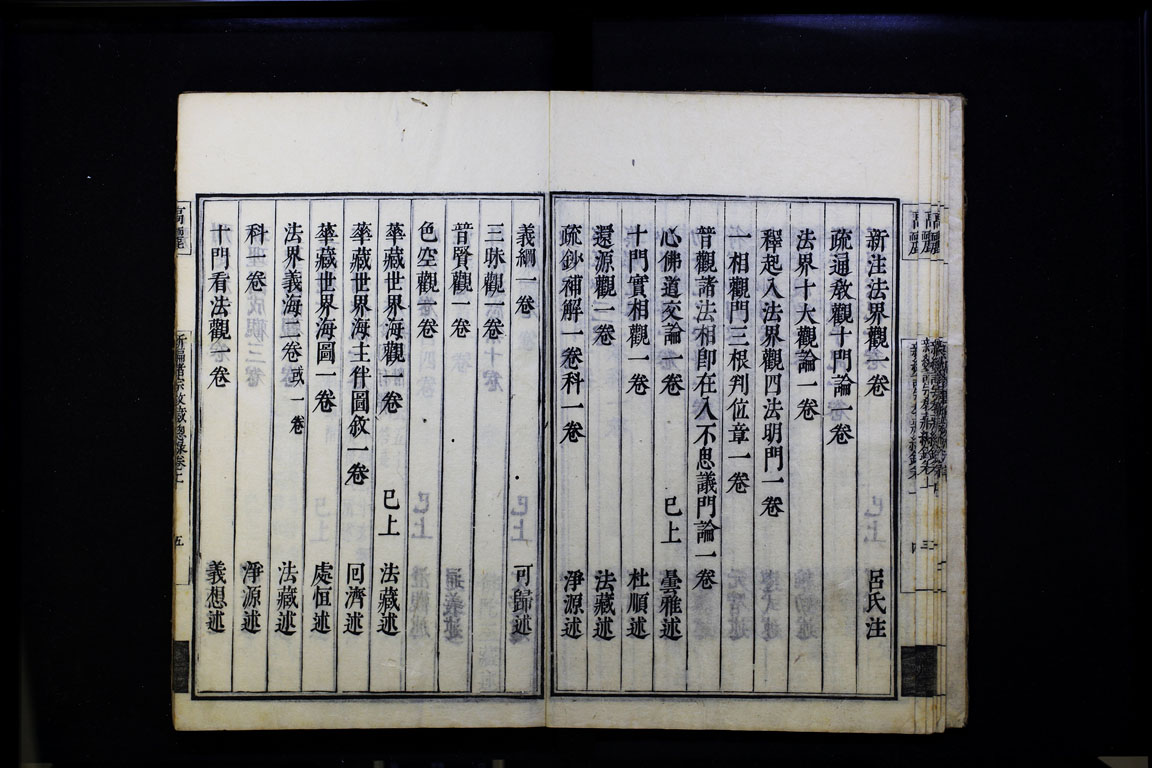 新注法界觀一卷 呂氏注
疏通敎觀十門論一卷
法界十大觀論一卷
釋起入法界觀四法明門一卷
一相觀門三根判位章一卷
普觀諸法相卽在入不思議門論一卷
心佛道交論一卷 已上 曇雅述
十門實相觀一卷 杜順述
還源觀一卷 法藏述
疏鈔補解一卷科一卷 淨源述
義綱一卷 可歸述
三昧觀一卷
普賢觀一卷
色空觀一卷
華藏世界海觀一卷 已上 法藏述
華藏世界海主伴圖敘一卷 回濟述
華藏世界海圖一卷 處恒述
法界義海二卷或一卷 法藏述
科一卷 淨源述
十門看法觀一卷 義想述
新編諸宗敎藏總錄卷上
五